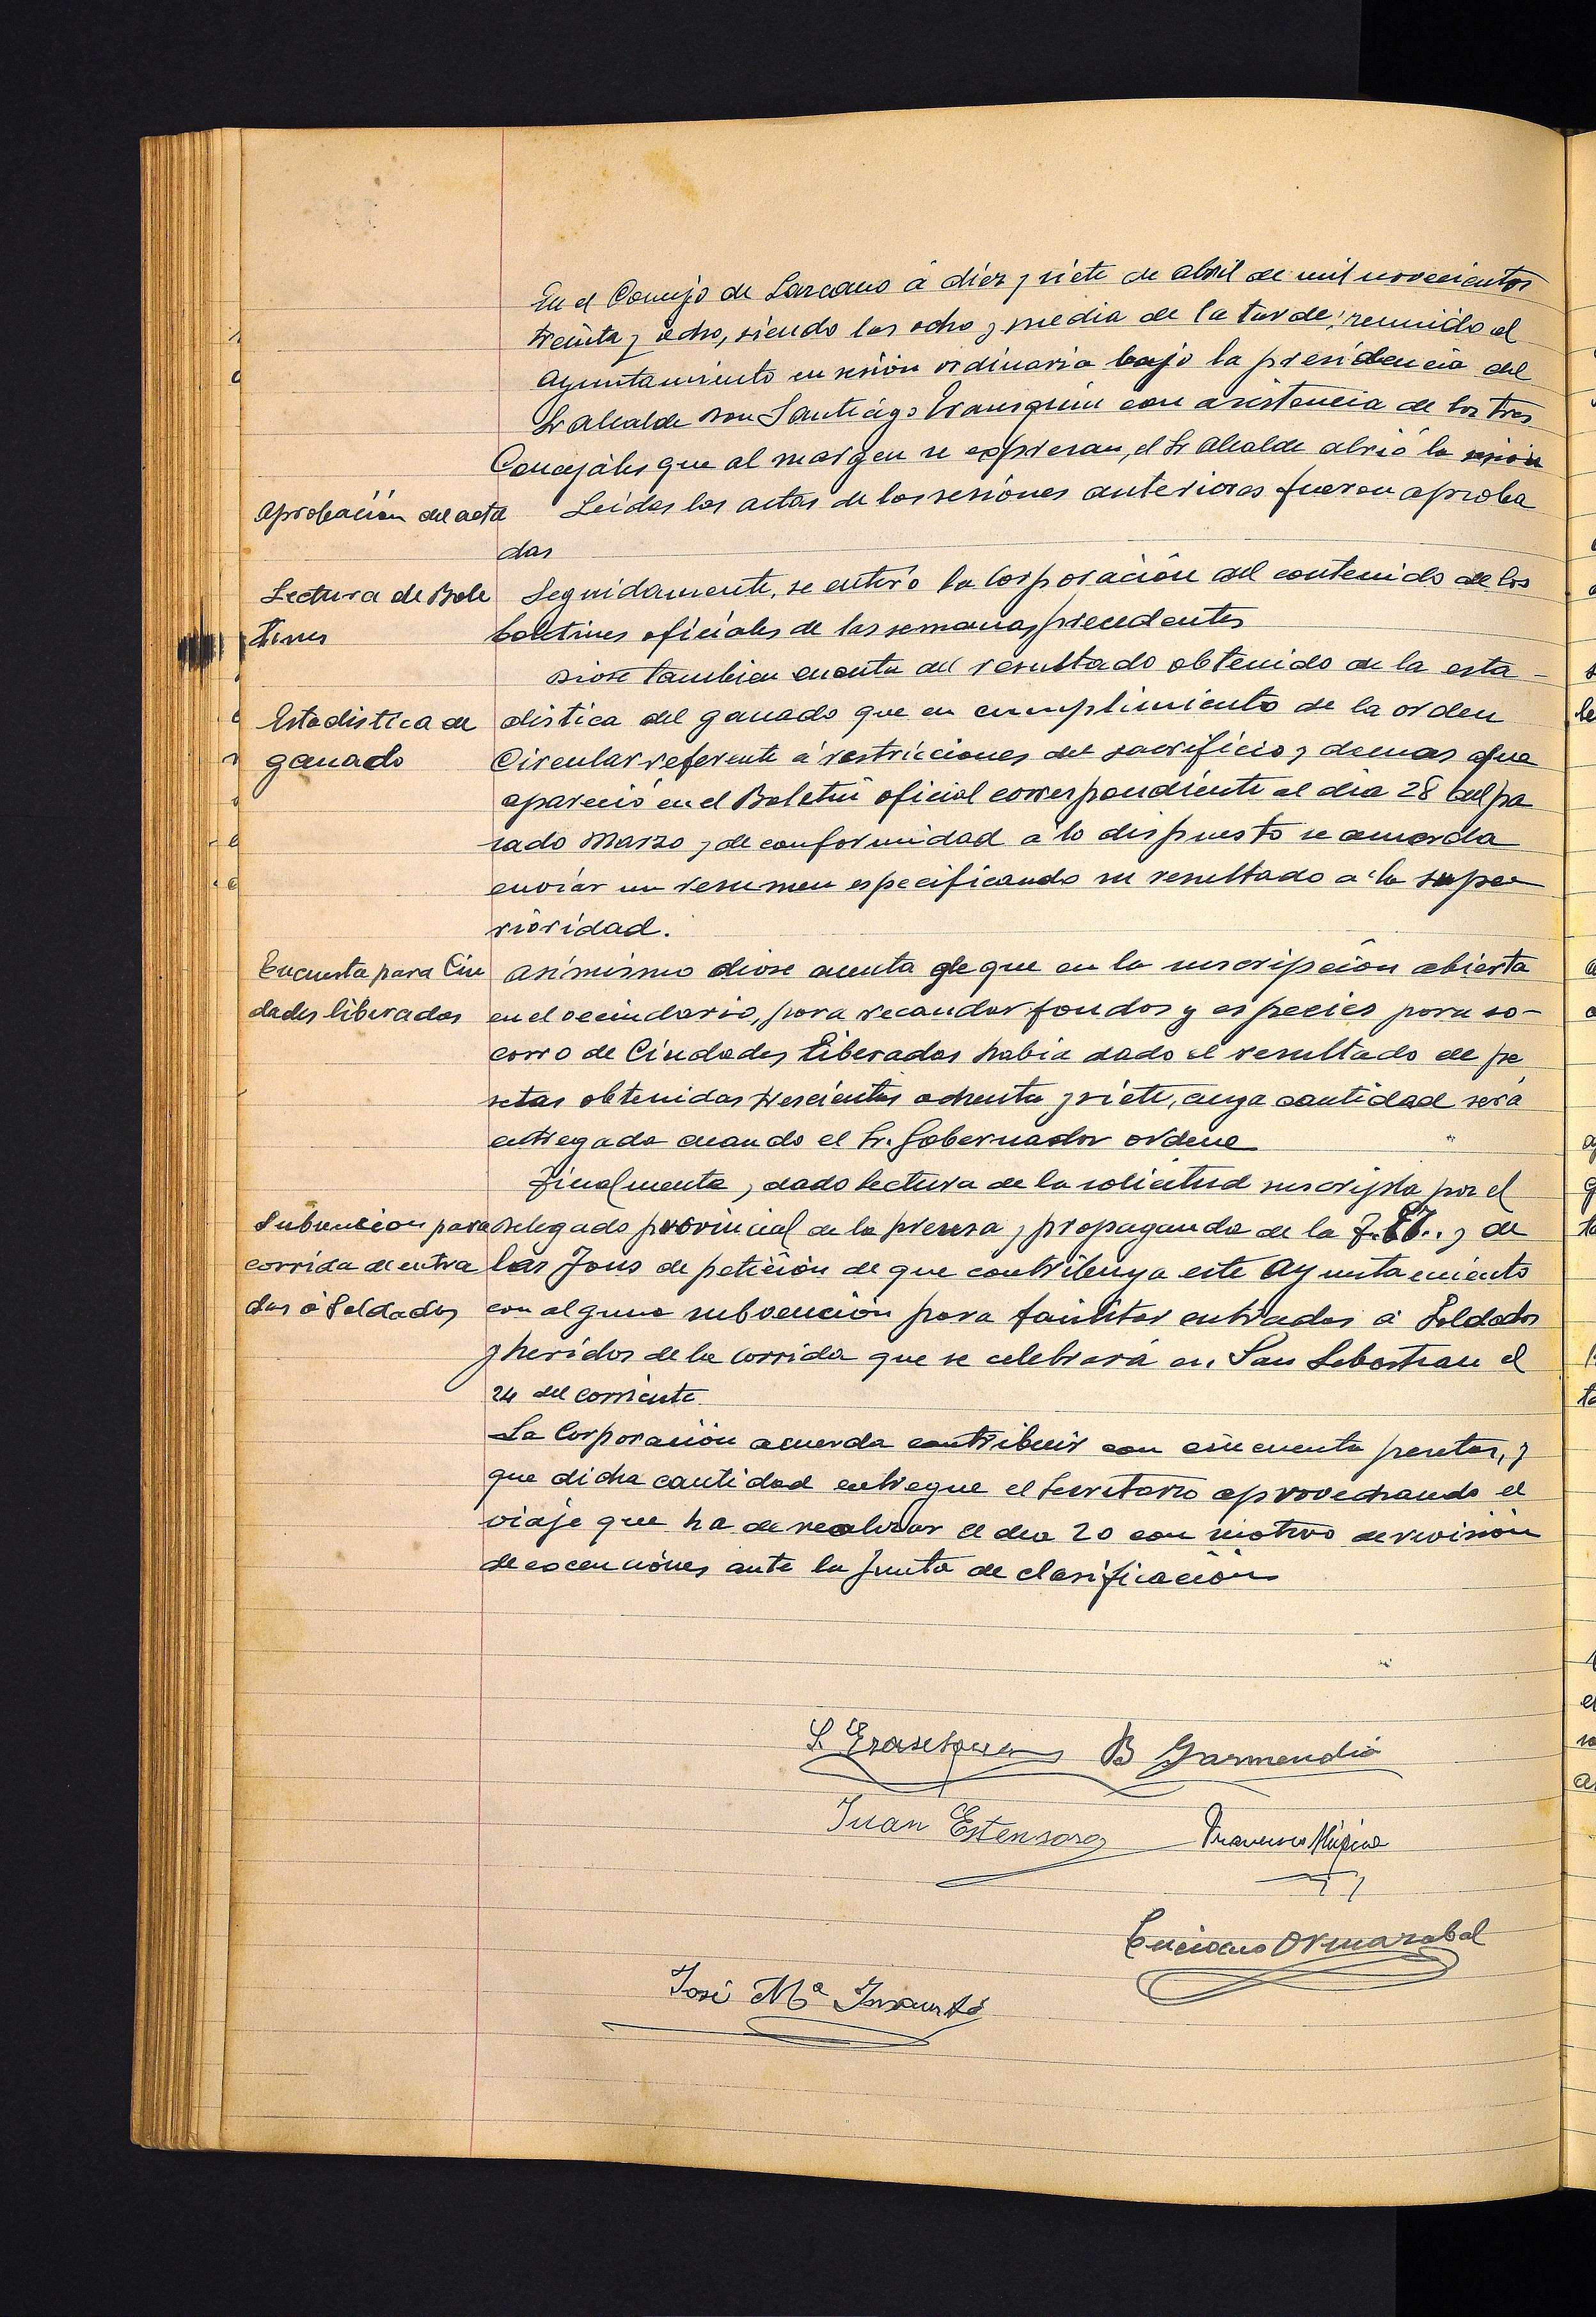 En el Concejo de Lazcano á diez y siete de abril de mil novecientos
treinta y ocho, siendo las ocho y media de la tarde, reunido el
Ayuntamiento en sesión ordinaria bajo la presidencia del
Sr Alcalde Don Santiago Erausquin con asistencia de los tres
Concejales que al margen se expresan, el Sr Alcalde abrió la sesión
Aprobación del acta
Leidas las actas de las sesiones anteriores fueron aproba
das
Lectura de Bole
tines
Seguidamente, se enteró la Corporación del contenido de los
boletines oficiales de las semanas precedentes
Estadistica de
ganado
Diose tambien cuenta del resultado obtenido de la esta-
distica del ganado que en cumplimiento de la orden
Circular referente á restricciones del sacrificio y demas que
apareció en el Boletin oficial correspondiente al dia 28 del pa
sado Marzo y de conformidad a lo dispuesto se acuerda
enviar un resumen especificando su resultado a la supe
rioridad.
Encuesta para Ciu
dades liberadas
Asimismo diose cuenta de que en la suscripción abierta
en el vecindario, para recaudar fondos y especies para so-
corro de Ciudades Liberadas habia dado el resultado de pe
setas obtenidas trescientas ochenta y siete, cuya cantidad será
entregada cuando el Sr. Gobernador ordene
Subvencion para
corrida de entra
das á Soldados
Finalmente, dado lectura de la solicitud suscripta por el
Delegado provincial de la prensa y propaganda de la F.ET.. y de
las Jons de petición de que contribuya este Ayuntamiento
con alguna subvención para facilitar entradas á Soldados
y heridos de la corrida que se celebrará en San Sebastian el
24 del corriente.
La Corporación acuerda contribuir con cincuenta pesetas, y
que dicha cantidad entregue el Secretario aprovechando el
viaje que ha de realizar el dia 20 con motivo de revisión
de excenciones ante la Junta de clasificación
S. Erausquin B Garmendia
Juan Estensoro Francisco Múgica
Luciano Ormazabal
José Mª Insausti